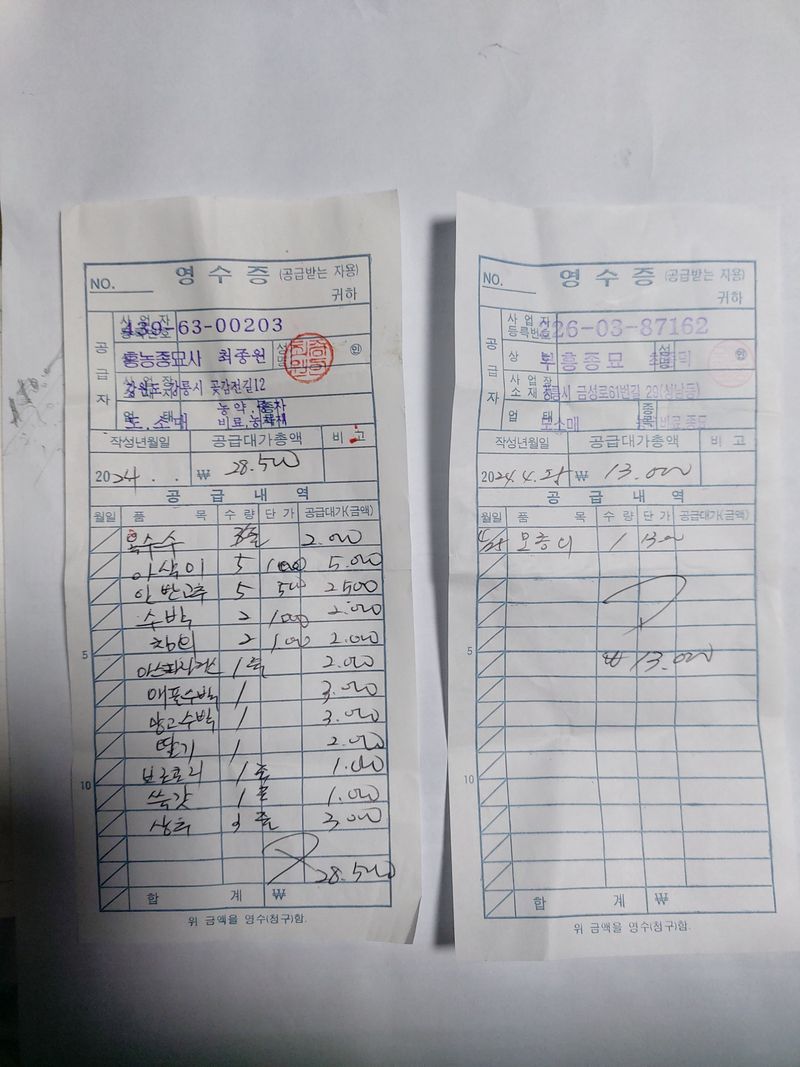 NO. 영 수 증 (공급받는 자용)
귀하
공급자
사업자등록번호 439-63-00203
홍농종묘사 성명 최종원 ㊞
사업장소재지 강원도 강릉시 곶감전길12
업태 도.소매 농약.종자
비료.농자재
작성년월일 공급대가총액 비 고
2024 . . ₩ 28.500
공 급 내 역
월일 품 목 수 량 단 가 공급대가(금액)
옥수수 2.000
아삭이 5 1000 5.000
일반고추 5 500 2500
수박 2 1000 2.000
참외 2 1000 2.000
5 아스파라거스 1 2.000
애플수박 1 3.000
망고수박 1 3.000
딸기 1 2.000
10 브로콜리 1 1.000
쑥갓 1 1.000
상추 3.000
28.500
합 계 ₩
위 금액을 영수(청구)함.
NO. 영 수 증 (공급받는 자용)
귀하
공급자
사업자등록번호 226-03-87162
상 부흥종묘 성명 ㊞
사업장소재 강릉시 금성로61번길 29(성남동)
업 태 도소매 종목 농약 비료 종묘
작성년월일 공급대가총액 비 고
2024. 4. 25 ₩ 13.000
공 급 내 역
월일 품 목 수 량 단 가 공급대가(금액)
4/25 모종 1
5 ₩ 13.000
10
합 계 ₩
위 금액을 영수(청구)함.